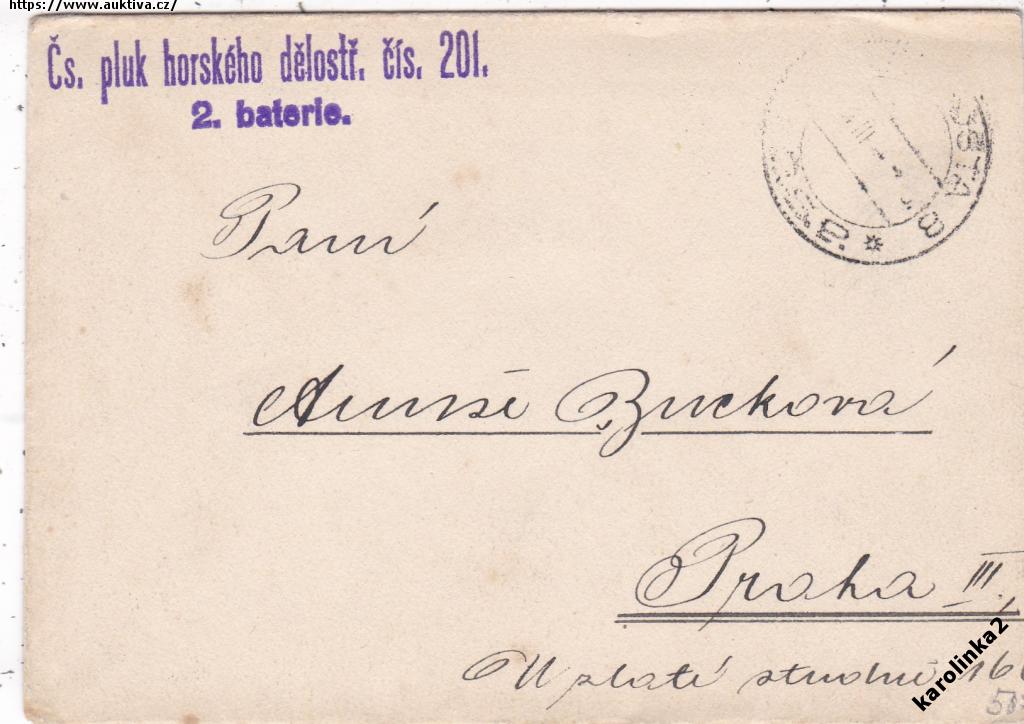 https://www.auktiva.cz/
Čs. pluk horského dělostř. čís. 201.
2. baterie.
Paní
Zucková
Praha III.,
U zlaté studně 16
karolinka2